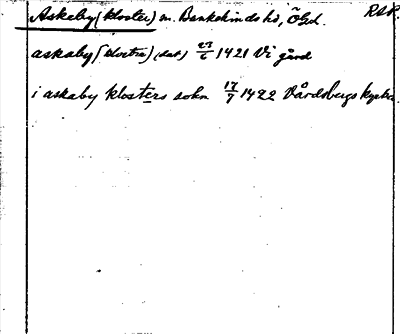 Askeby (kloster) sn. Bankekinds hd, Ögl. RSR.
askaby (kloster) (dat) 27/6 1421 Vi gård
i askaby klosters sokn 17/7 1422 Vårdsbergs kyrka